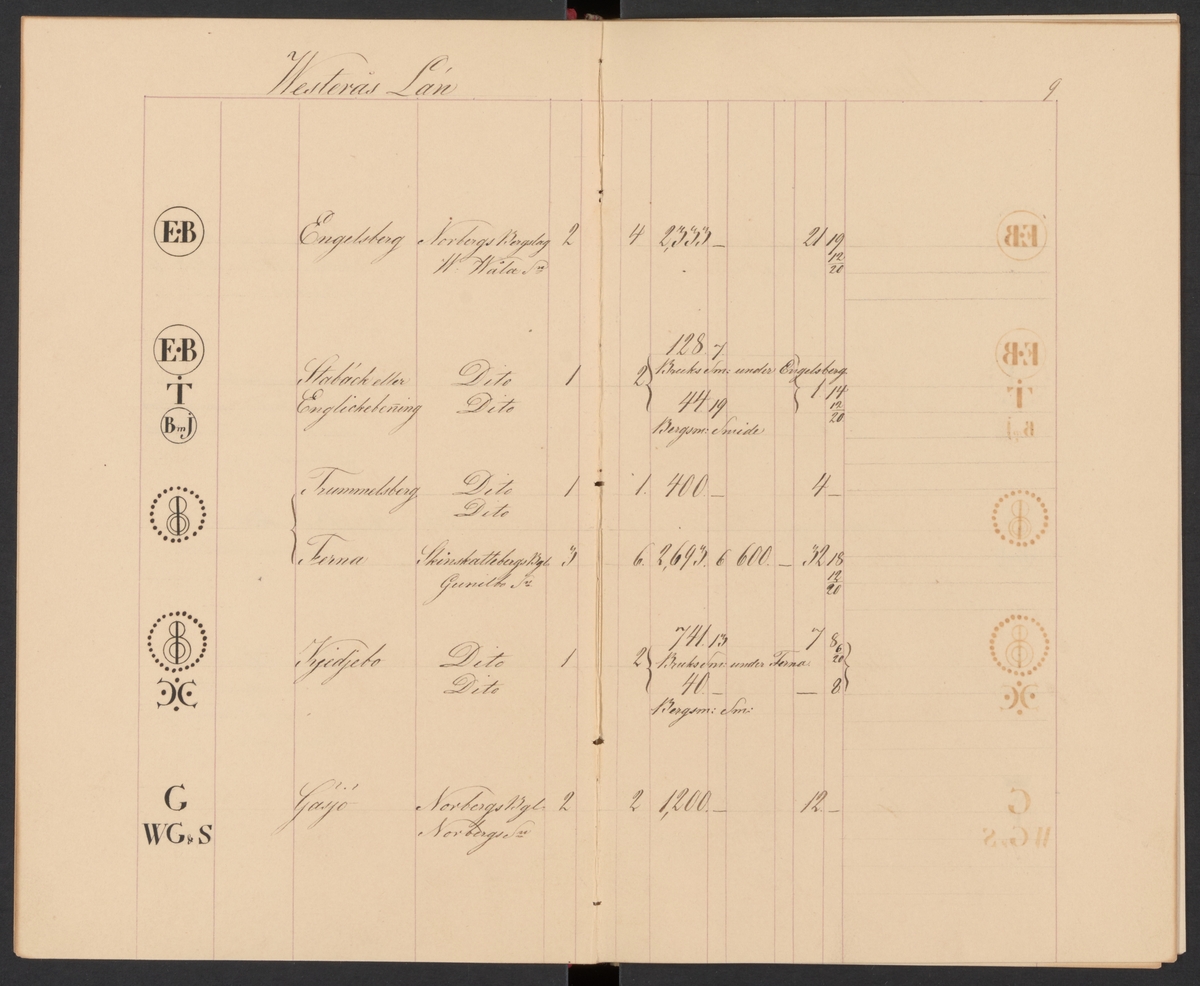 Westerås Län 9
E·B Engelsberg Norbergs Bergslag 2 4 2,333 — 21 19
W. Wåla Sn 12/20
E·B 128 7
Stabäck eller Dito 1 2 Bruks Sm: under Engelsberg
T 1 14
Englickebenning Dito 44 19 12/20
BmJ Bergsm: Smide
Trummelsberg Dito 1 1. 400. — 4 —
8 Dito
Ferna Skinskattebergs Bgl. 3 6. 2,693. 6 600. — 32 18
Gunilbo Sn 12/20
8 741. 13 7 8 6/20
Kjedjebo Dito 1 2 Bruks sm: under Ferna
Dito 40. — — 8
Bergsm: Sm:
G Gäsjö Norbergs Bgl. 2 2 1,200. — 12. —
WG&S Norbergs Sn